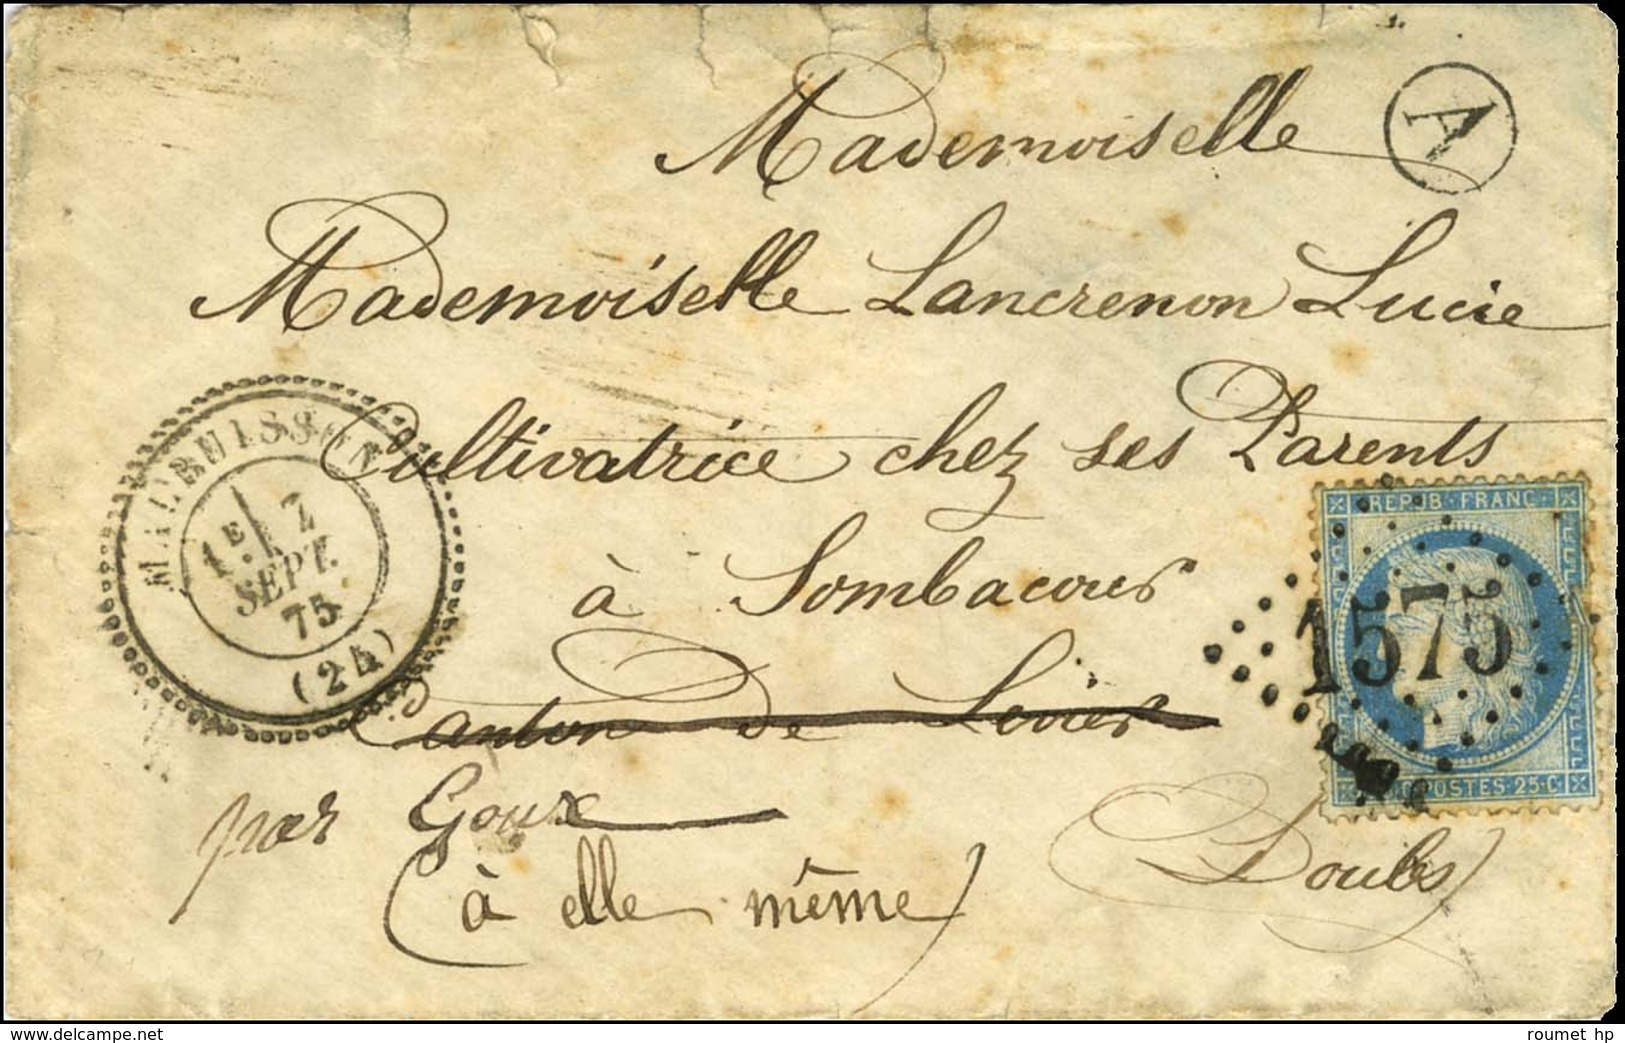 A
Mademoiselle
Mademoiselle Lancrenon Lucie
Cultivatrice chez ses Parents
à Sombacour
Canton de Levier
par Goux
(Doubs)
(à elle même)
MALBUISSON
1E
SEPT.
75
(24)
REPUB·FRANC·
1575
POSTES·25·C
delcampe.net
roumet hp